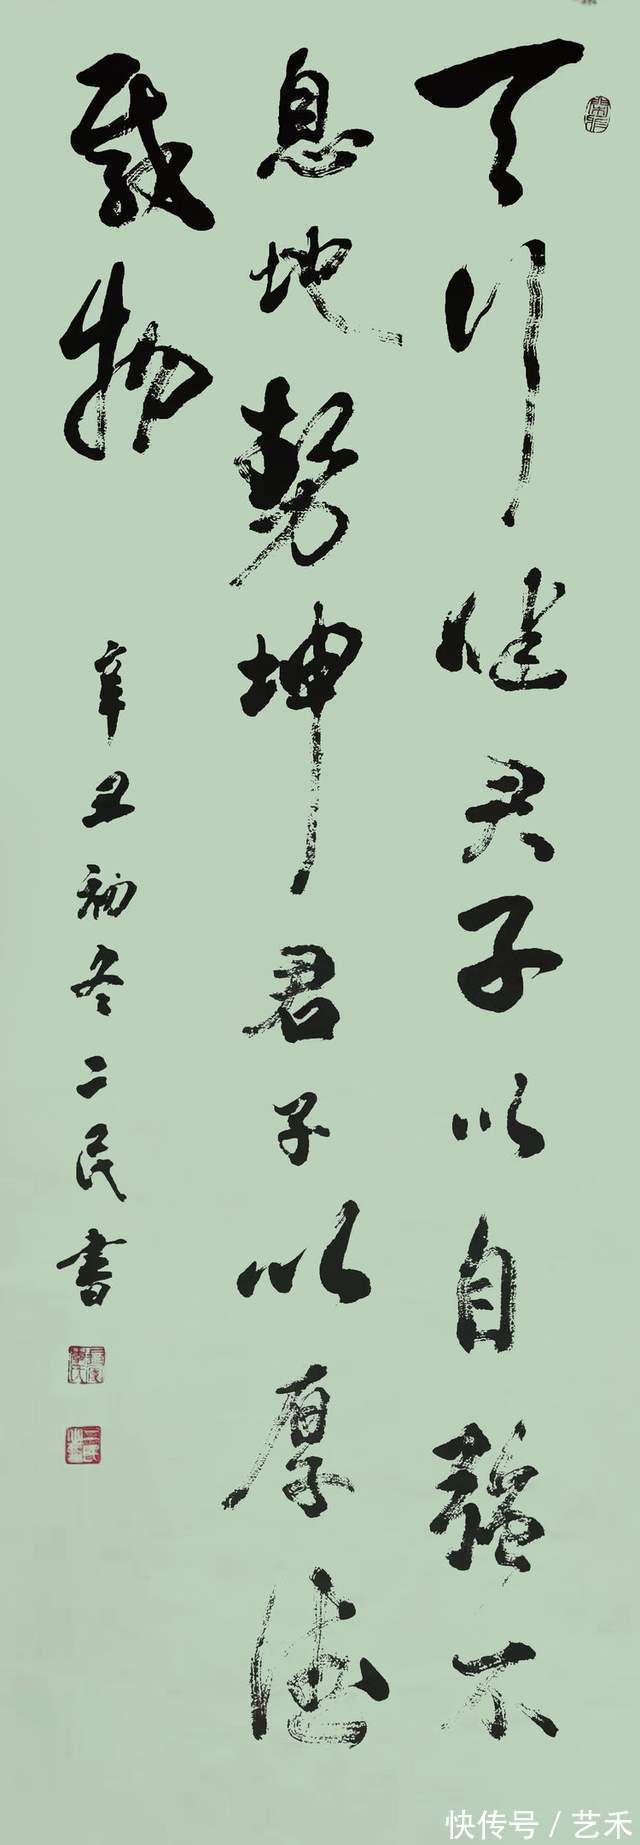 天行健君子以自强不
息地势坤君子以厚德
载物
辛丑初冬二民书
快传号/艺禾